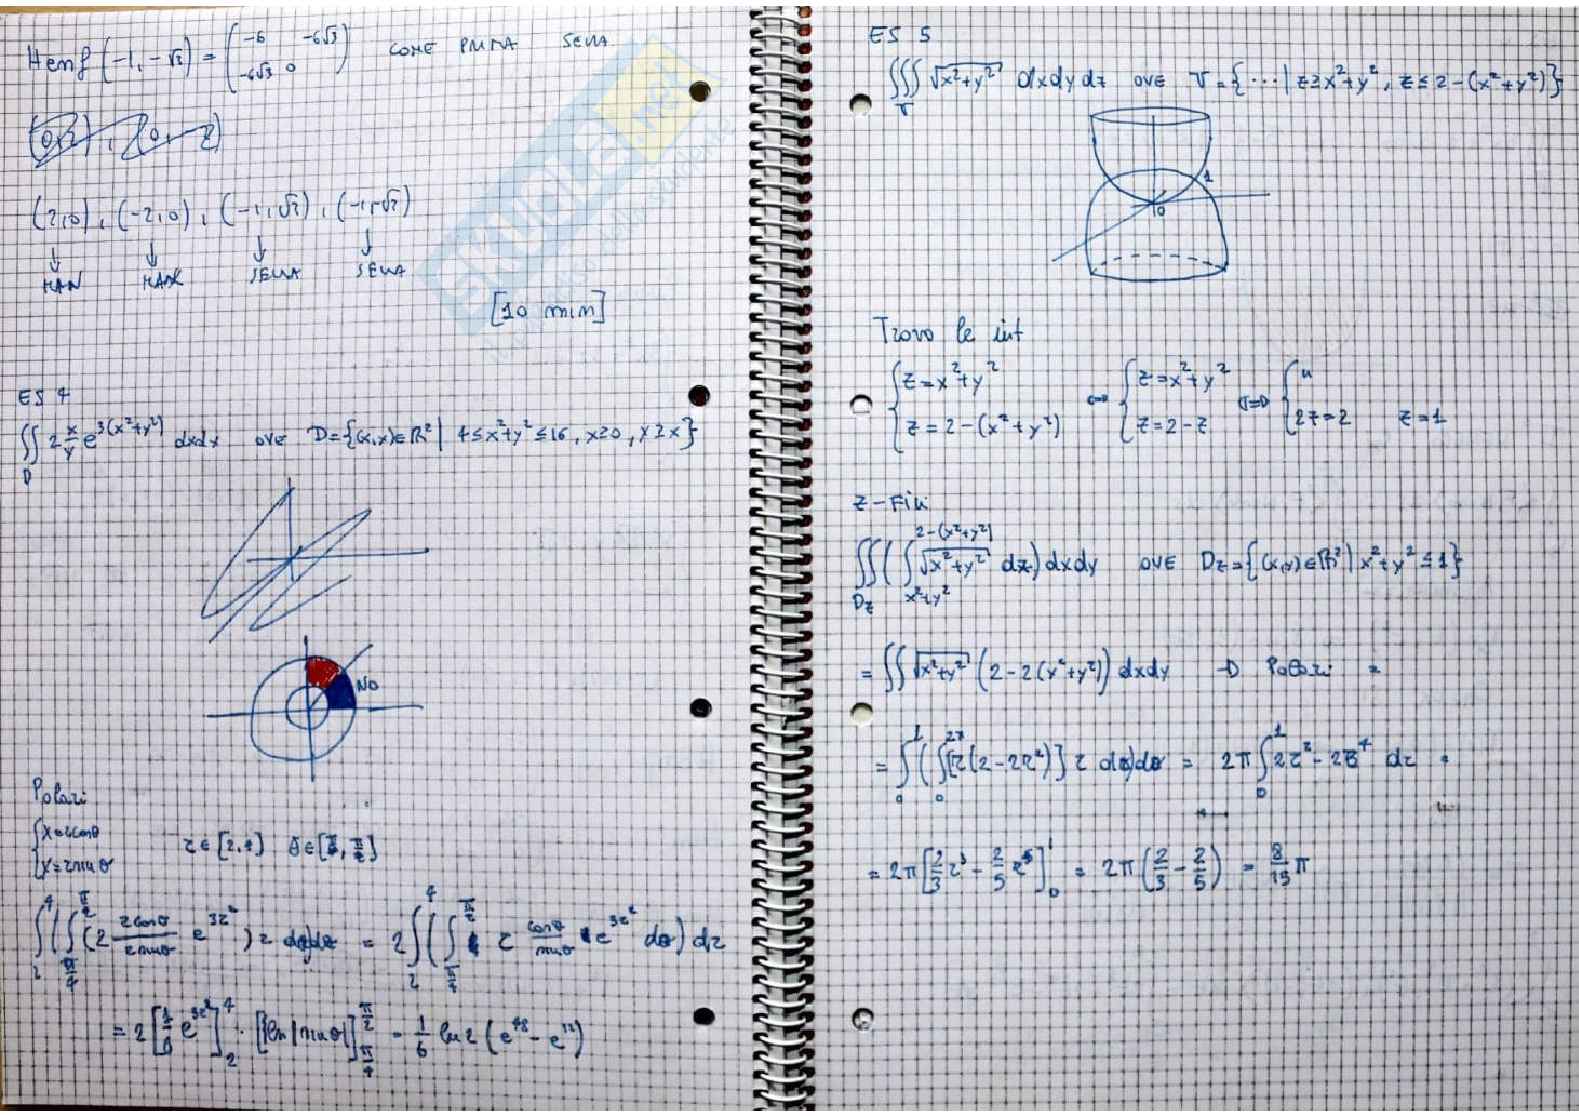 Hess f (-1, -√3) = ( -6 -6√3 / -6√3 0 ) COME PRIMA SELLA
(2,0), (-2,0), (-1,√3), (-1,-√3)
↓ ↓ ↓ ↓
MIN MAX SELLA SELLA
[10 min]
ES 4
∬_D 2 x/y e^{3(x²+y²)} dxdy ove D={(x,y)∈ℝ² | 4≤x²+y²≤16, x≥0, y≥x}
NO
Polari
{ x=rcosθ
{ y=rsinθ r∈[2,4] θ∈[π/4, π/2]
∫_2^4 (∫_{π/4}^{π/2} (2 rcosθ/rsinθ e^{3r²}) r dθ)dr = 2∫_2^4 (∫_{π/4}^{π/2} r cosθ/sinθ e^{3r²} dθ) dr
= 2[1/6 e^{3r²}]_2^4 · [ln|sinθ|]_{π/4}^{π/2} = 1/6 ln2 (e^{48} - e^{12})
ES 5
∭_V √(x²+y²) dxdydz ove V={... | z≥x²+y², z≤2-(x²+y²)}
1
0
Trovo le int
{ z=x²+y² ⇔ { z=x²+y² ⇔ { "
{ z=2-(x²+y²) { z=2-z { 2z=2 z=1
z-Fili
∬_{Dz} (∫_{x²+y²}^{2-(x²+y²)} √(x²+y²) dz) dxdy OVE Dz={(x,y)∈ℝ² | x²+y²≤1}
= ∬ √(x²+y²) (2-2(x²+y²)) dxdy → Polari =
= ∫_0^1 (∫_0^{2π} [r(2-2r²)] r dθ)dr = 2π ∫_0^1 2r²-2r⁴ dr =
= 2π [2/3 r³ - 2/5 r⁵]_0^1 = 2π (2/3 - 2/5) = 8/15 π
SKUOLA.net